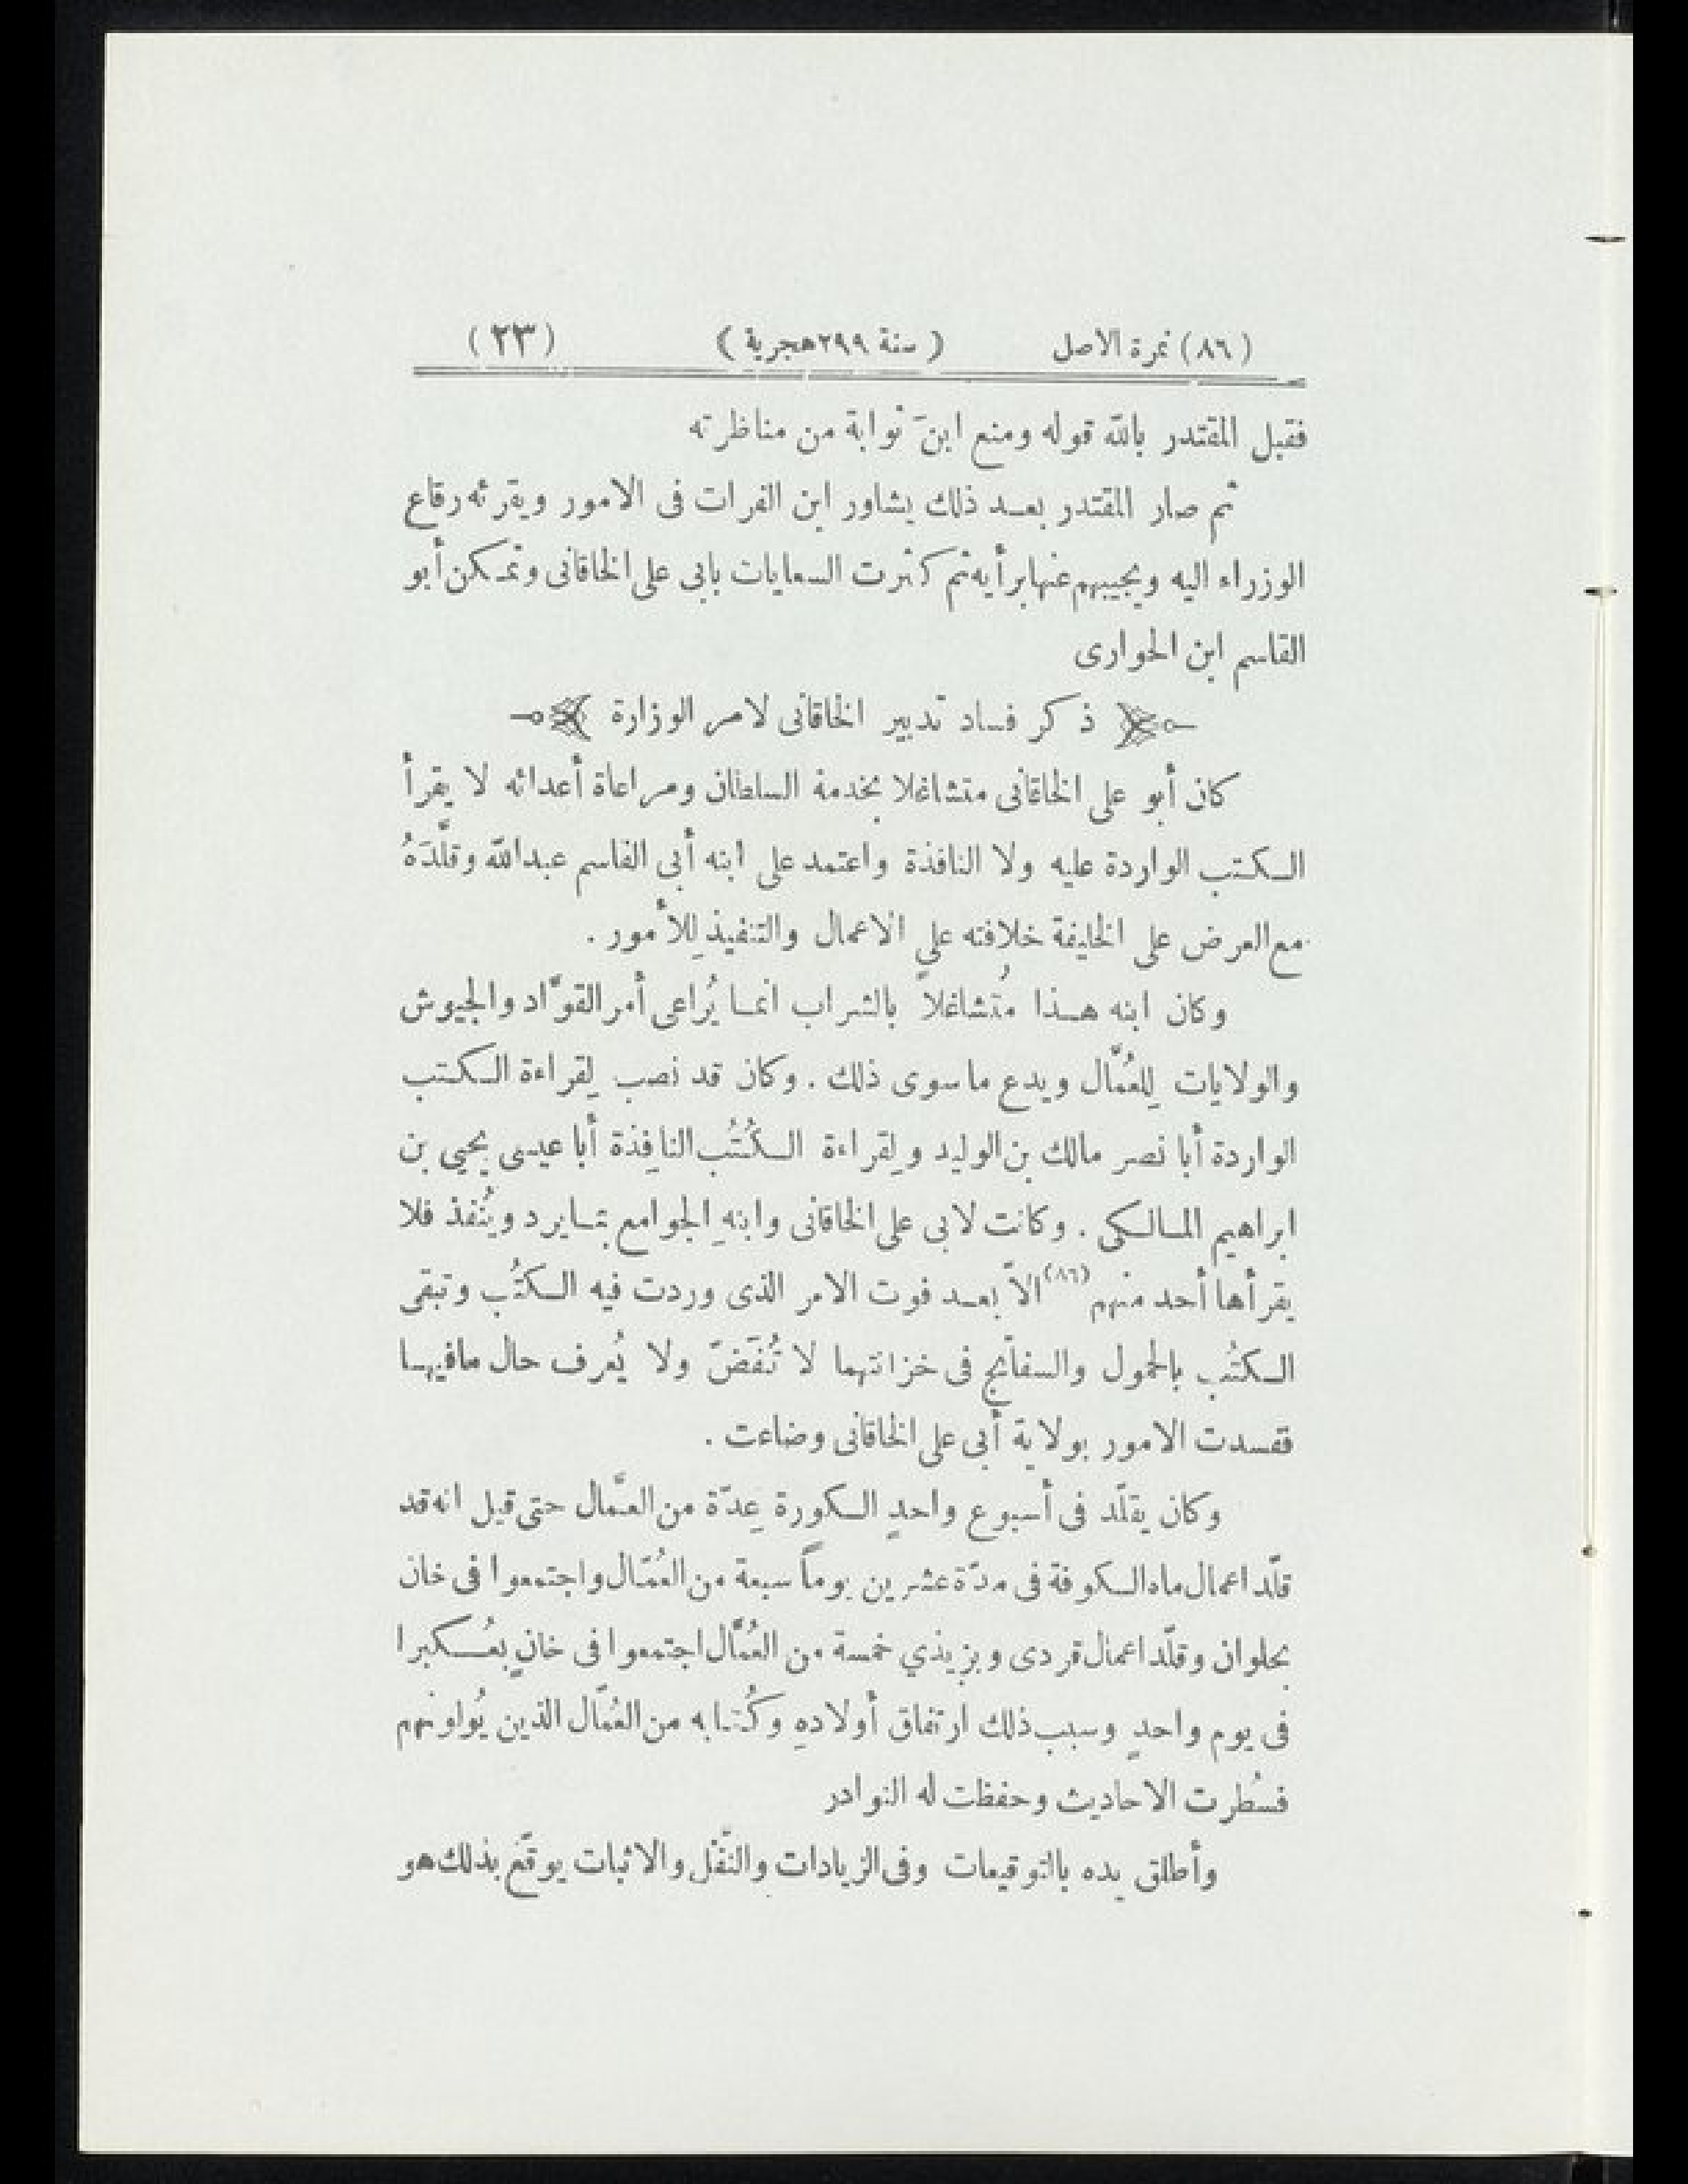 (٨٦) نمرة الاصل ( سنة ٢٩٩ هجرية ) (٢٣)
فقبل المقتدر بالله قوله ومنع ابنَ ثوابة من مناظرته
ثم صار المقتدر بعد ذلك يشاور ابن الفرات فى الامور ويقرئه رقاع
الوزراء اليه ويجيبهم عنها برأيه ثم كثرت السعايات بابى على الخاقانى وتمكن أبو
القاسم ابن الحوارى
ذكر فساد تدبير الخاقانى لامر الوزارة
كان أبو على الخاقانى متشاغلا بخدمة السلطان ومراعاة أعدائه لا يقرأ
الكتب الواردة عليه ولا النافذة واعتمد على ابنه أبى القاسم عبدالله وقلَّدَهُ
مع العرض على الخليفة خلافته على الاعمال والتنفيذ لِلأمور .
وكان ابنه هذا مُتشاغلاً بالشراب انما يُراعى أمر القوّاد والجيوش
والولايات لِلعُمّال ويدع ما سوى ذلك . وكان قد نصب لِقراءة الكتب
الواردة أبا نصر مالك بن الوليد ولِقراءة الكُتُب النافِذة أبا عيسى يحيى بن
ابراهيم المالكى . وكانت لابى على الخاقانى وابنهِ الجوامع بما يرد ويُنفذ فلا
يقرأها أحد منهم (٨٦) الاّ بعد فوت الامر الذى وردت فيه الكتُب وتبقى
الكتُب بالحمول والسفاتج فى خزانتهما لا تُفَضّ ولا يُعرف حال ما فيها
ففسدت الامور بولاية أبى على الخاقانى وضاعت .
وكان يقلّد فى أسبوع واحدٍ الكورة عِدّة من العمّال حتى قيل انه قد
قلّد اعمال ماه الكوفة فى مدّة عشرين يوماً سبعة من العُمّال واجتمعوا فى خان
بحلوان وقلّد اعمال قردى وبزبذي خمسة من العُمّال اجتمعوا فى خانٍ بعُكبرا
فى يوم واحدٍ وسبب ذلك ارتفاق أولادهِ وكُتابه من العُمّال الذين يُولونهم
فسُطرت الاحاديث وحفظت له النوادر
وأطلق يده بالتوقيعات وفى الزيادات والنّقْل والاثبات يوقّع بذلك هو